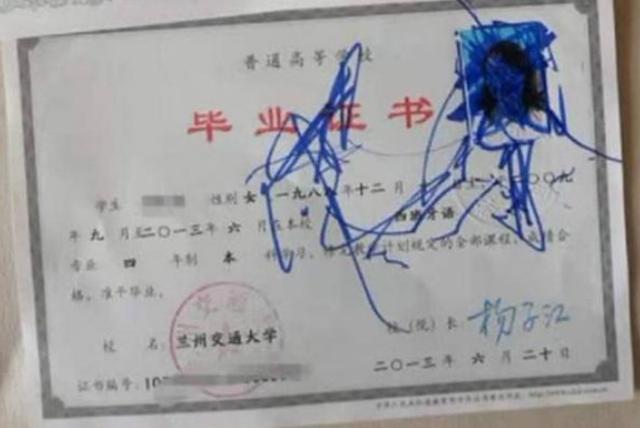 普通高等学校
毕业证书
学生 性别 女 一九八八年十二月 二〇〇九
年九月至二〇一三年六月在本校 西班牙语
专业 四 年制 本 科学习,修完教学计划规定的全部课程,成绩合
格,准予毕业。
校 名:兰州交通大学 校(院)长:杨子江
证书编号:10 二〇一三年六月二十日